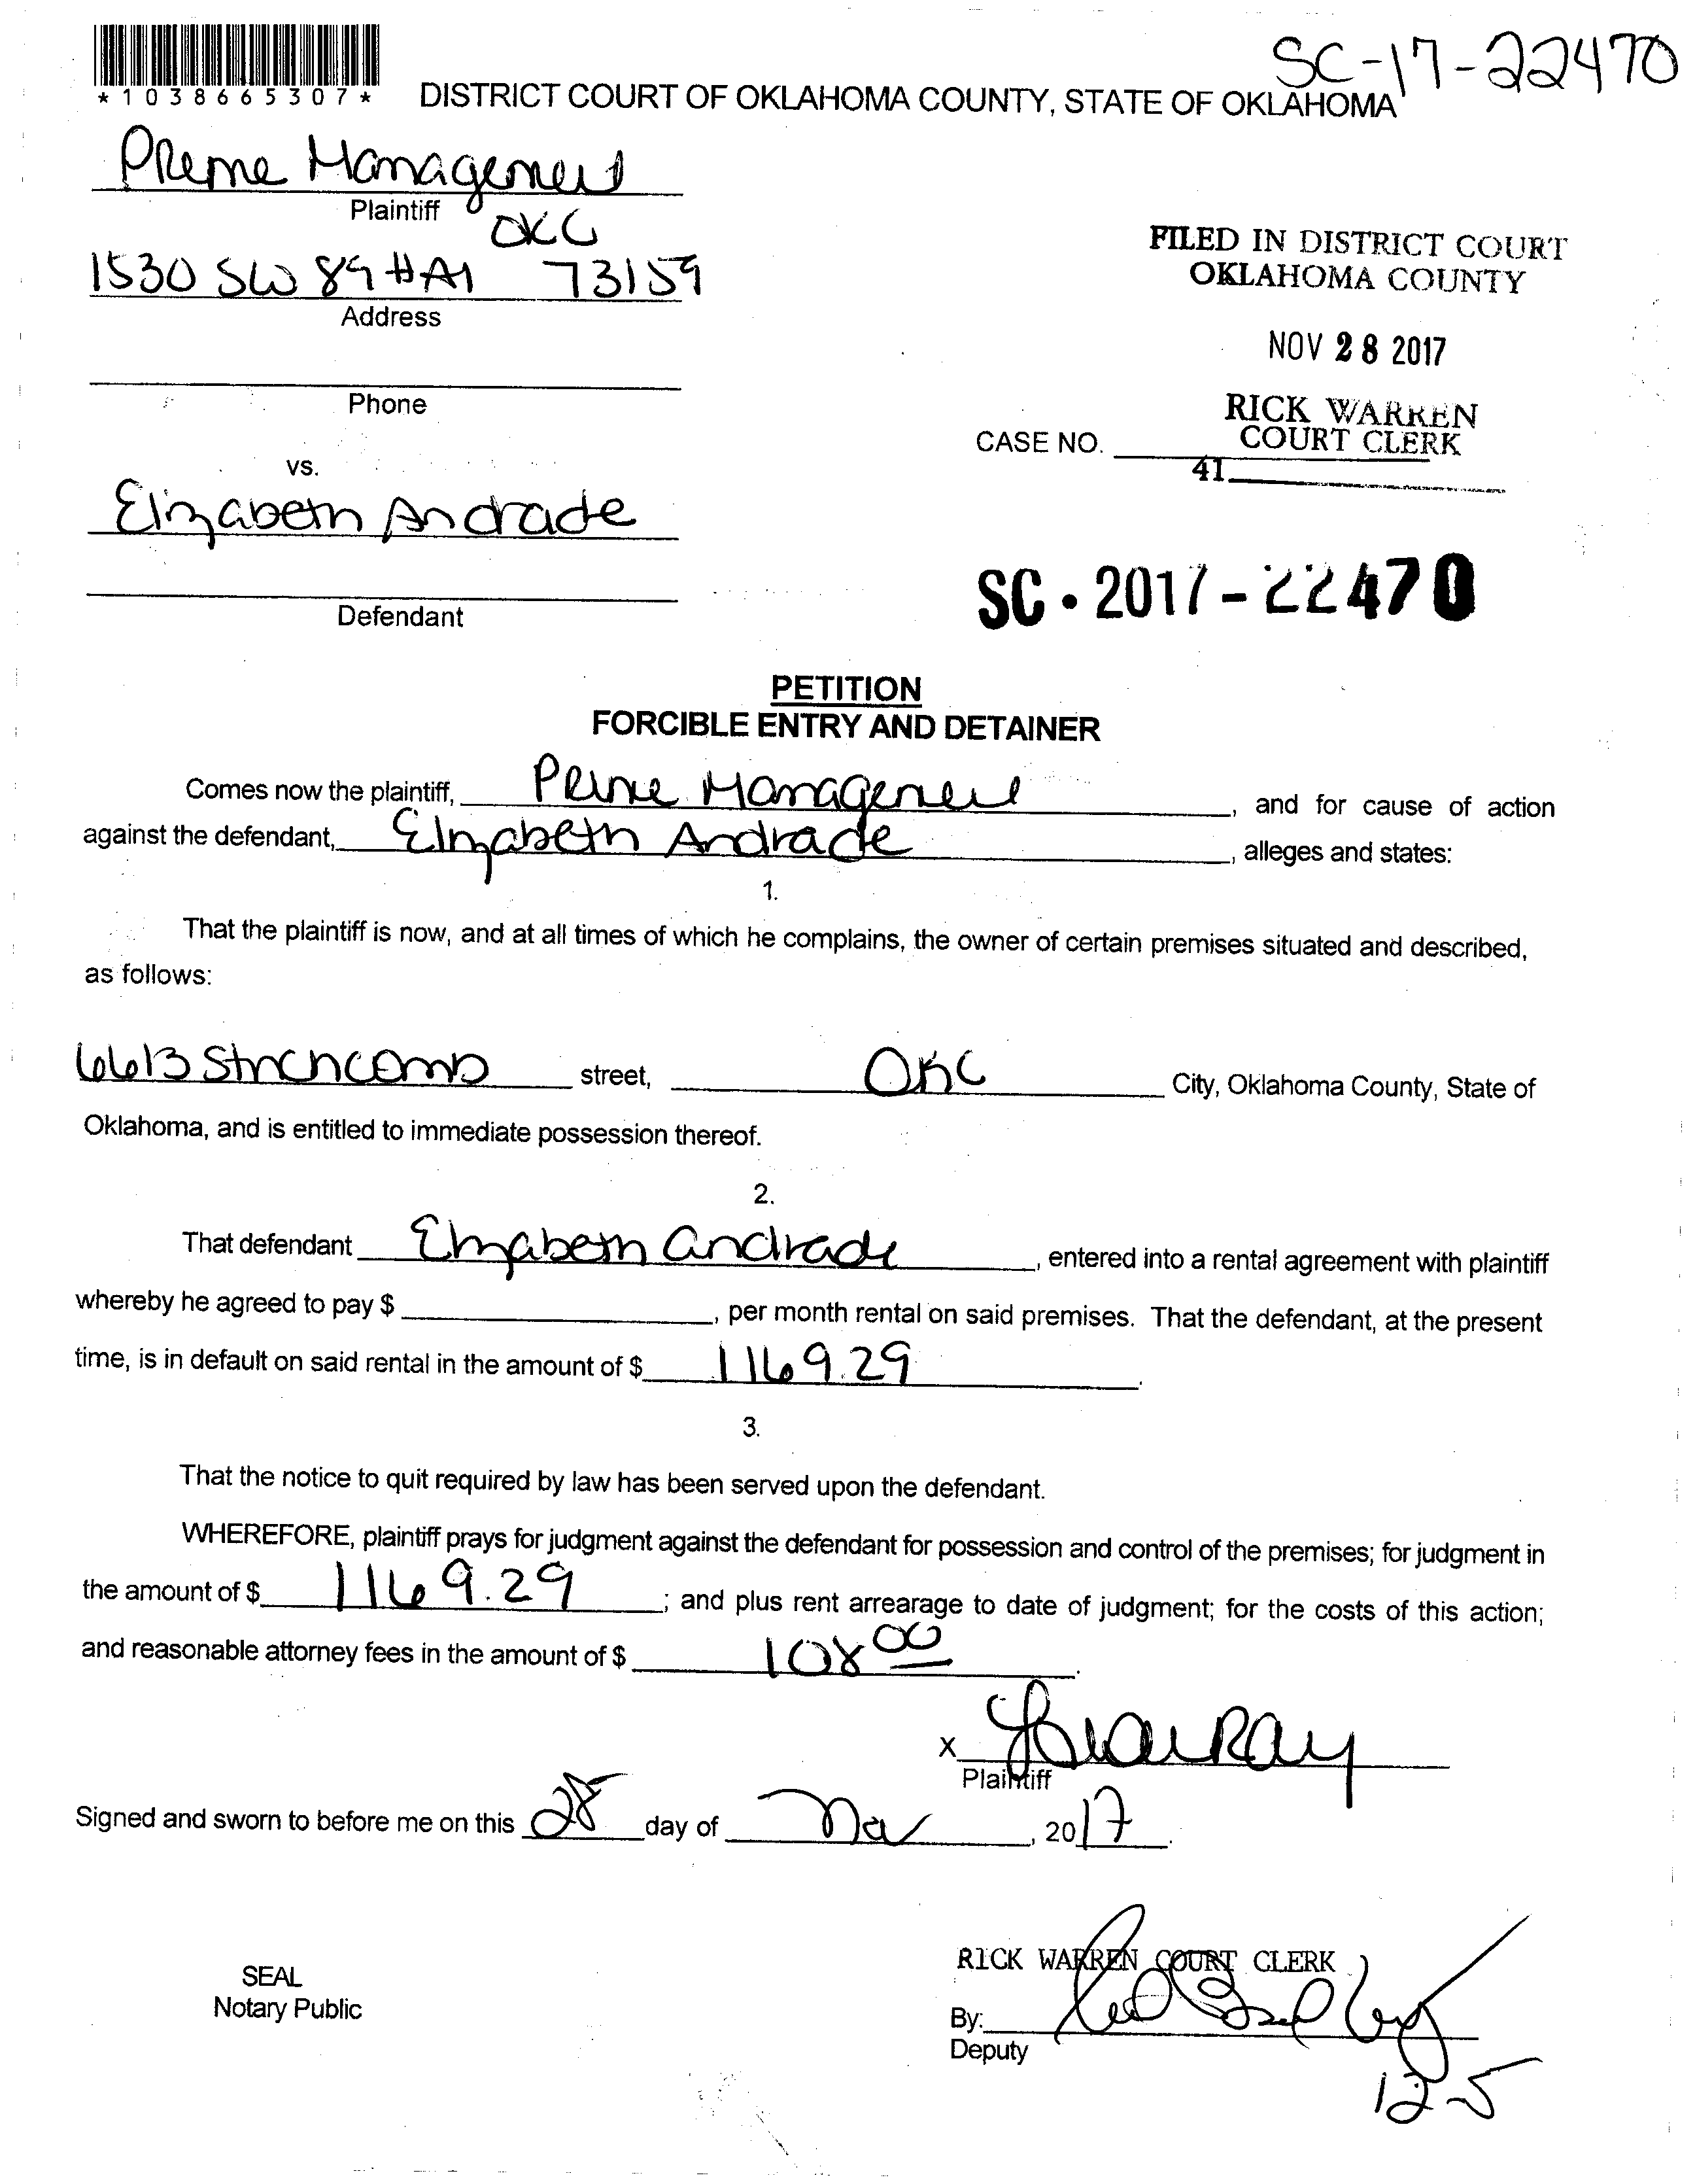 SC-17-22470
*1038665307*
DISTRICT COURT OF OKLAHOMA COUNTY, STATE OF OKLAHOMA
Prime Management
Plaintiff
OKC
1530 SW 89 #A1 73159
Address
FILED IN DISTRICT COURT
OKLAHOMA COUNTY
NOV 28 2017
RICK WARREN
COURT CLERK
41
Phone
CASE NO.
vs.
Elizabeth Andrade
Defendant
SC - 2017 - 22470
PETITION
FORCIBLE ENTRY AND DETAINER
Comes now the plaintiff, Prime Management, and for cause of action
against the defendant, Elizabeth Andrade, alleges and states:
1.
That the plaintiff is now, and at all times of which he complains, the owner of certain premises situated and described,
as follows:
6613 Stinchcomb street, OKC City, Oklahoma County, State of
Oklahoma, and is entitled to immediate possession thereof.
2.
That defendant Elizabeth Andrade, entered into a rental agreement with plaintiff
whereby he agreed to pay $ , per month rental on said premises. That the defendant, at the present
time, is in default on said rental in the amount of $ 1169.29.
3.
That the notice to quit required by law has been served upon the defendant.
WHEREFORE, plaintiff prays for judgment against the defendant for possession and control of the premises; for judgment in
the amount of $ 1169.29; and plus rent arrearage to date of judgment; for the costs of this action;
and reasonable attorney fees in the amount of $ 108 00.
X
Plaintiff
Signed and sworn to before me on this 28 day of Nov, 2017.
SEAL
Notary Public
RICK WARREN COURT CLERK
By:
Deputy
12-5